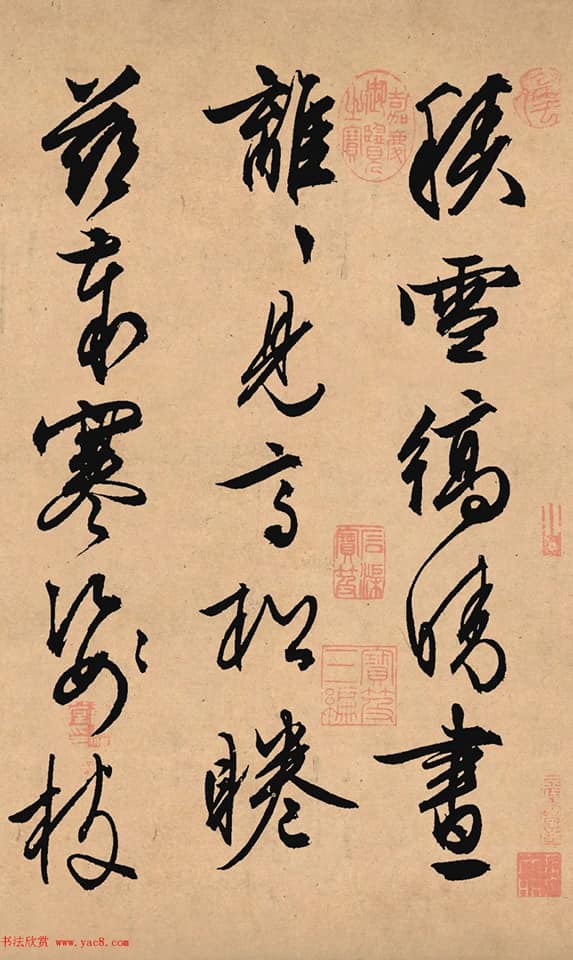 積雪縞晴晝
離〻見高松睠
茲歲寒姿枝
嘉慶御覽之寶
石渠寶笈
寶笈三編
书法欣赏 www.yac8.com